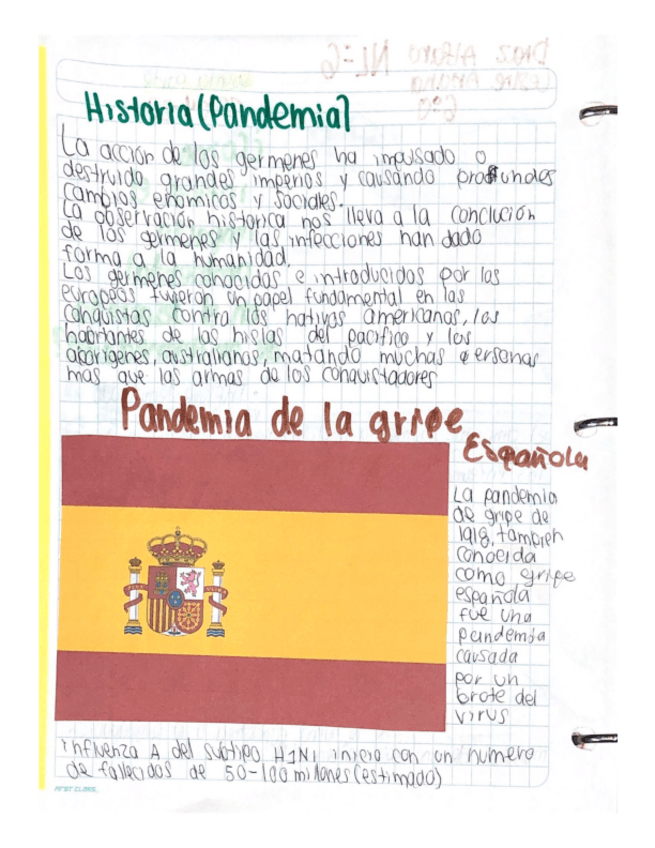 Historia (Pandemia)
La acción de los germenes ha impusado o
destruido grandes imperios y causando profundes
cambios enomicos y sociales.
La observación historica nos lleva a la conclución
de los germenes y las infecciones han dado
forma a la humanidad.
Los germenes conocidos e introducidos por los
europeos tuvieron un papel fundamental en las
conquistas contra los nativos americanos, los
habitantes de las hislas del pacifico y los
aborigenes, australianos, matando muchas personas
mas que las armas de los conquistadores
Pandemia de la gripe
Española
La pandemia
de gripe de
1918, tambien
conocida
como gripe
española
fue una
pandemia
causada
por un
brote del
virus
influenza A del subtipo H1N1 inicio con un numero
de fallecidos de 50-100 millones (estimado)
FIRST CLASS.